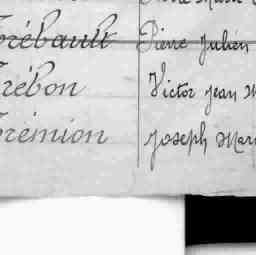 Trébault Pierre Julien
Trébon Victor Jean M
Trémion Joseph Mar